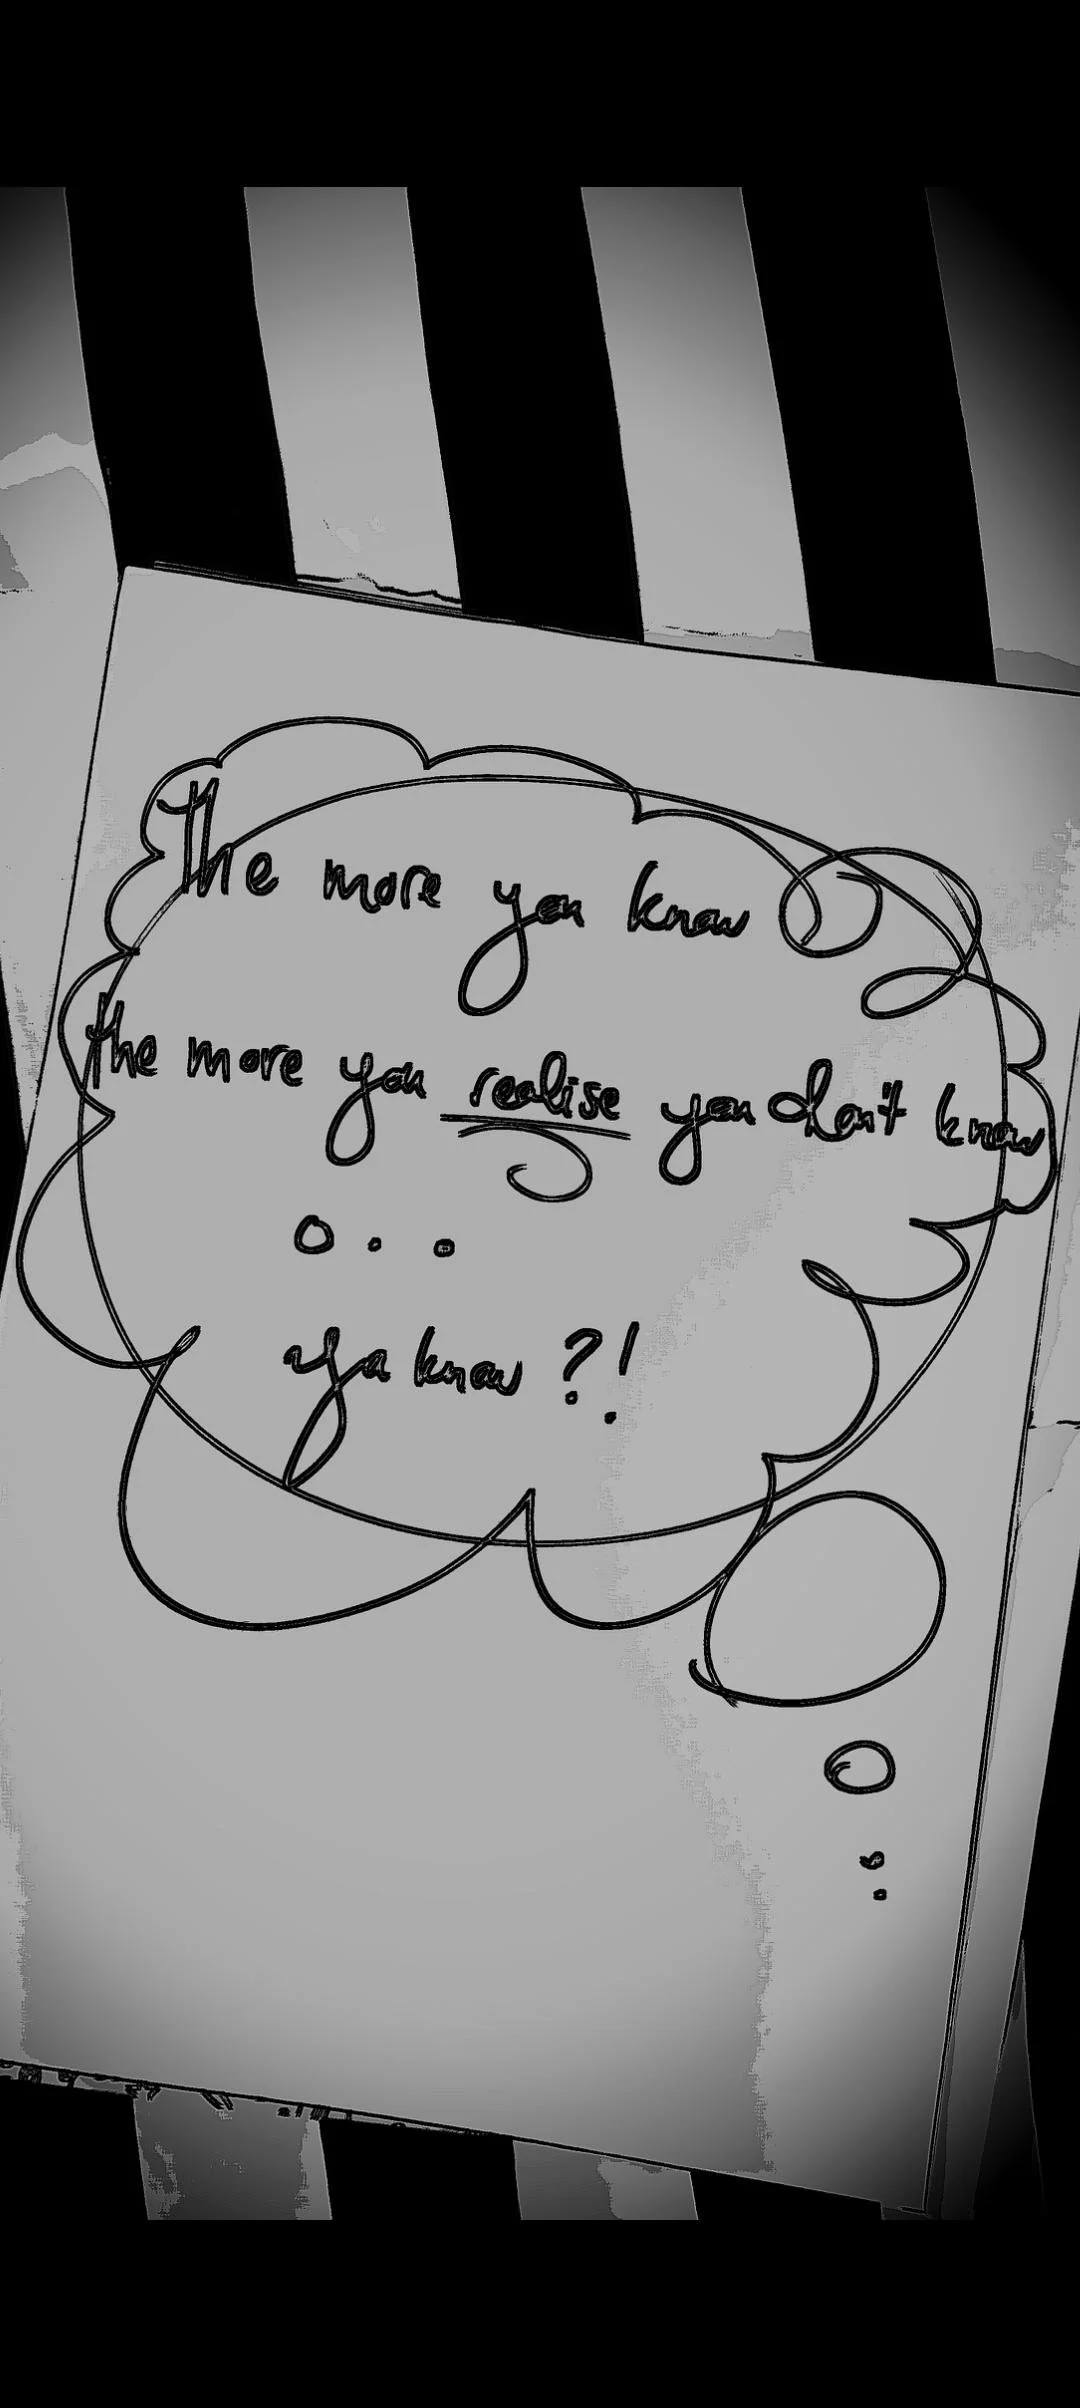 The more you know
the more you realise you don't know
...
ya know ?!